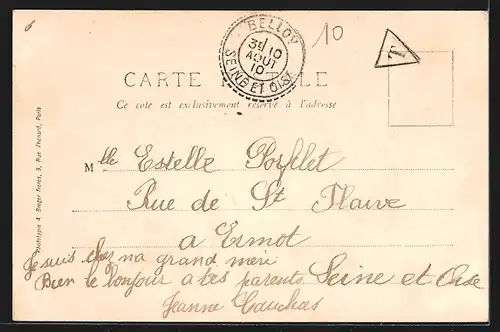 6
10
BELLOY
31 10
AOUT
10
SEINE ET OISE
T
CARTE POSTALE
Ce coté est exclusivement réservé à l'adresse
Mlle Estelle
Rue de St Flaive
a Ermot
Je suis chez ma grand meri
Bien le bonjour a tes parents Seine et Oise
Jeanne
Phototypie A. Breger frères, 9, Rue Thénard, Paris